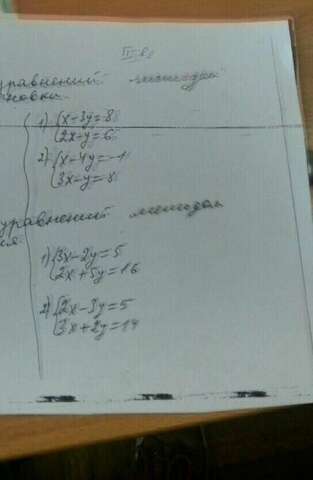 II в.
уравнений методом
новки.
1) {x-3y=8
{2x-y=6
2) {x-4y=-1
{3x-y=8
уравнений методом
ия
1) {3x-2y=5
{2x+5y=16
2) {2x-3y=5
{3x+2y=14